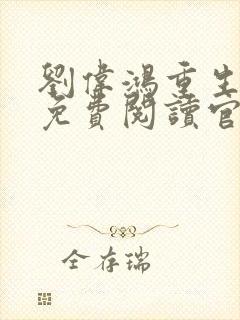 劉偉鴻重生
免費閱讀官
全存瑞